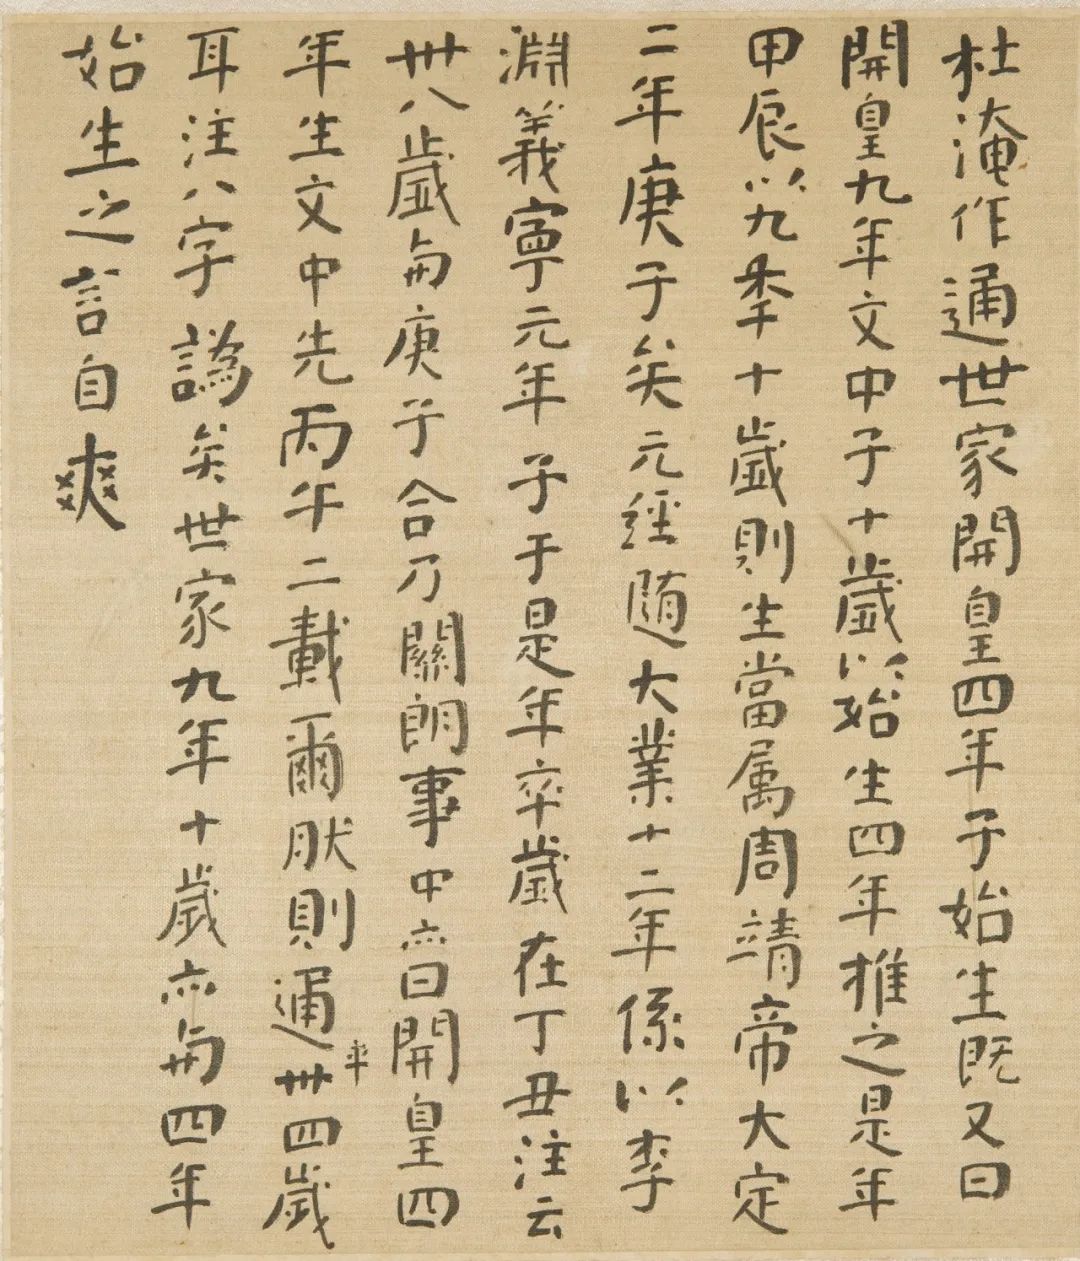 杜淹作通世家開皇四年子始生既又曰
開皇九年文中子十歲以始生四年推之是年
甲辰以九季十歲則生當属周靖帝大定
二年庚子矣元經随大業十二年係以李
淵義寧元年子于是年卒歲在丁丑注云
卅八歲与庚子合乃關朗事中亦曰開皇四
年生文中先丙午二載爾肰則通卒卅四歲
耳注八字譌矣世家九年十歲亦与四年
始生之言自爽